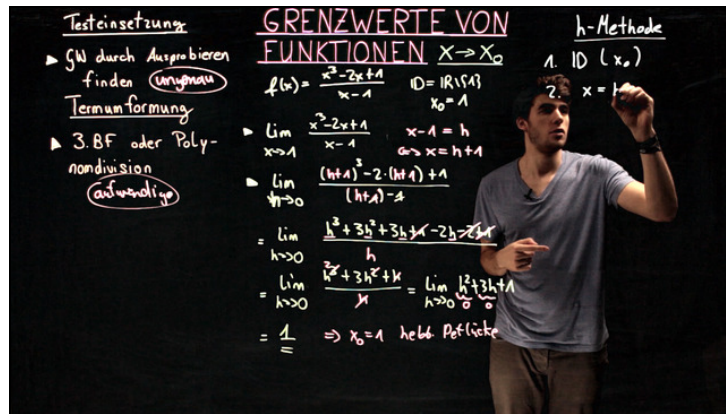 Testeinsetzung
▸ GW durch Ausprobieren
finden ungenau
Termumformung
▸ 3.BF oder Poly-
nomdivision
aufwendig
GRENZWERTE VON
FUNKTIONEN x→x₀
f(x) = (x³-2x+1)/(x-1) ID=IR\{1}
x₀=1
▸ lim x→1 (x³-2x+1)/(x-1) x-1=h
⇔ x=h+1
▸ lim h→0 ((h+1)³-2·(h+1)+1)/((h+1)-1)
= lim h→0 (h³+3h²+3h+1-2h-2+1)/h
= lim h→0 (h³+3h²+h)/h = lim h→0 h²+3h+1
0 0
= 1 ⇒ x₀=1 hebb. Deflücke
h-Methode
1. ID (x₀)
2. x=h